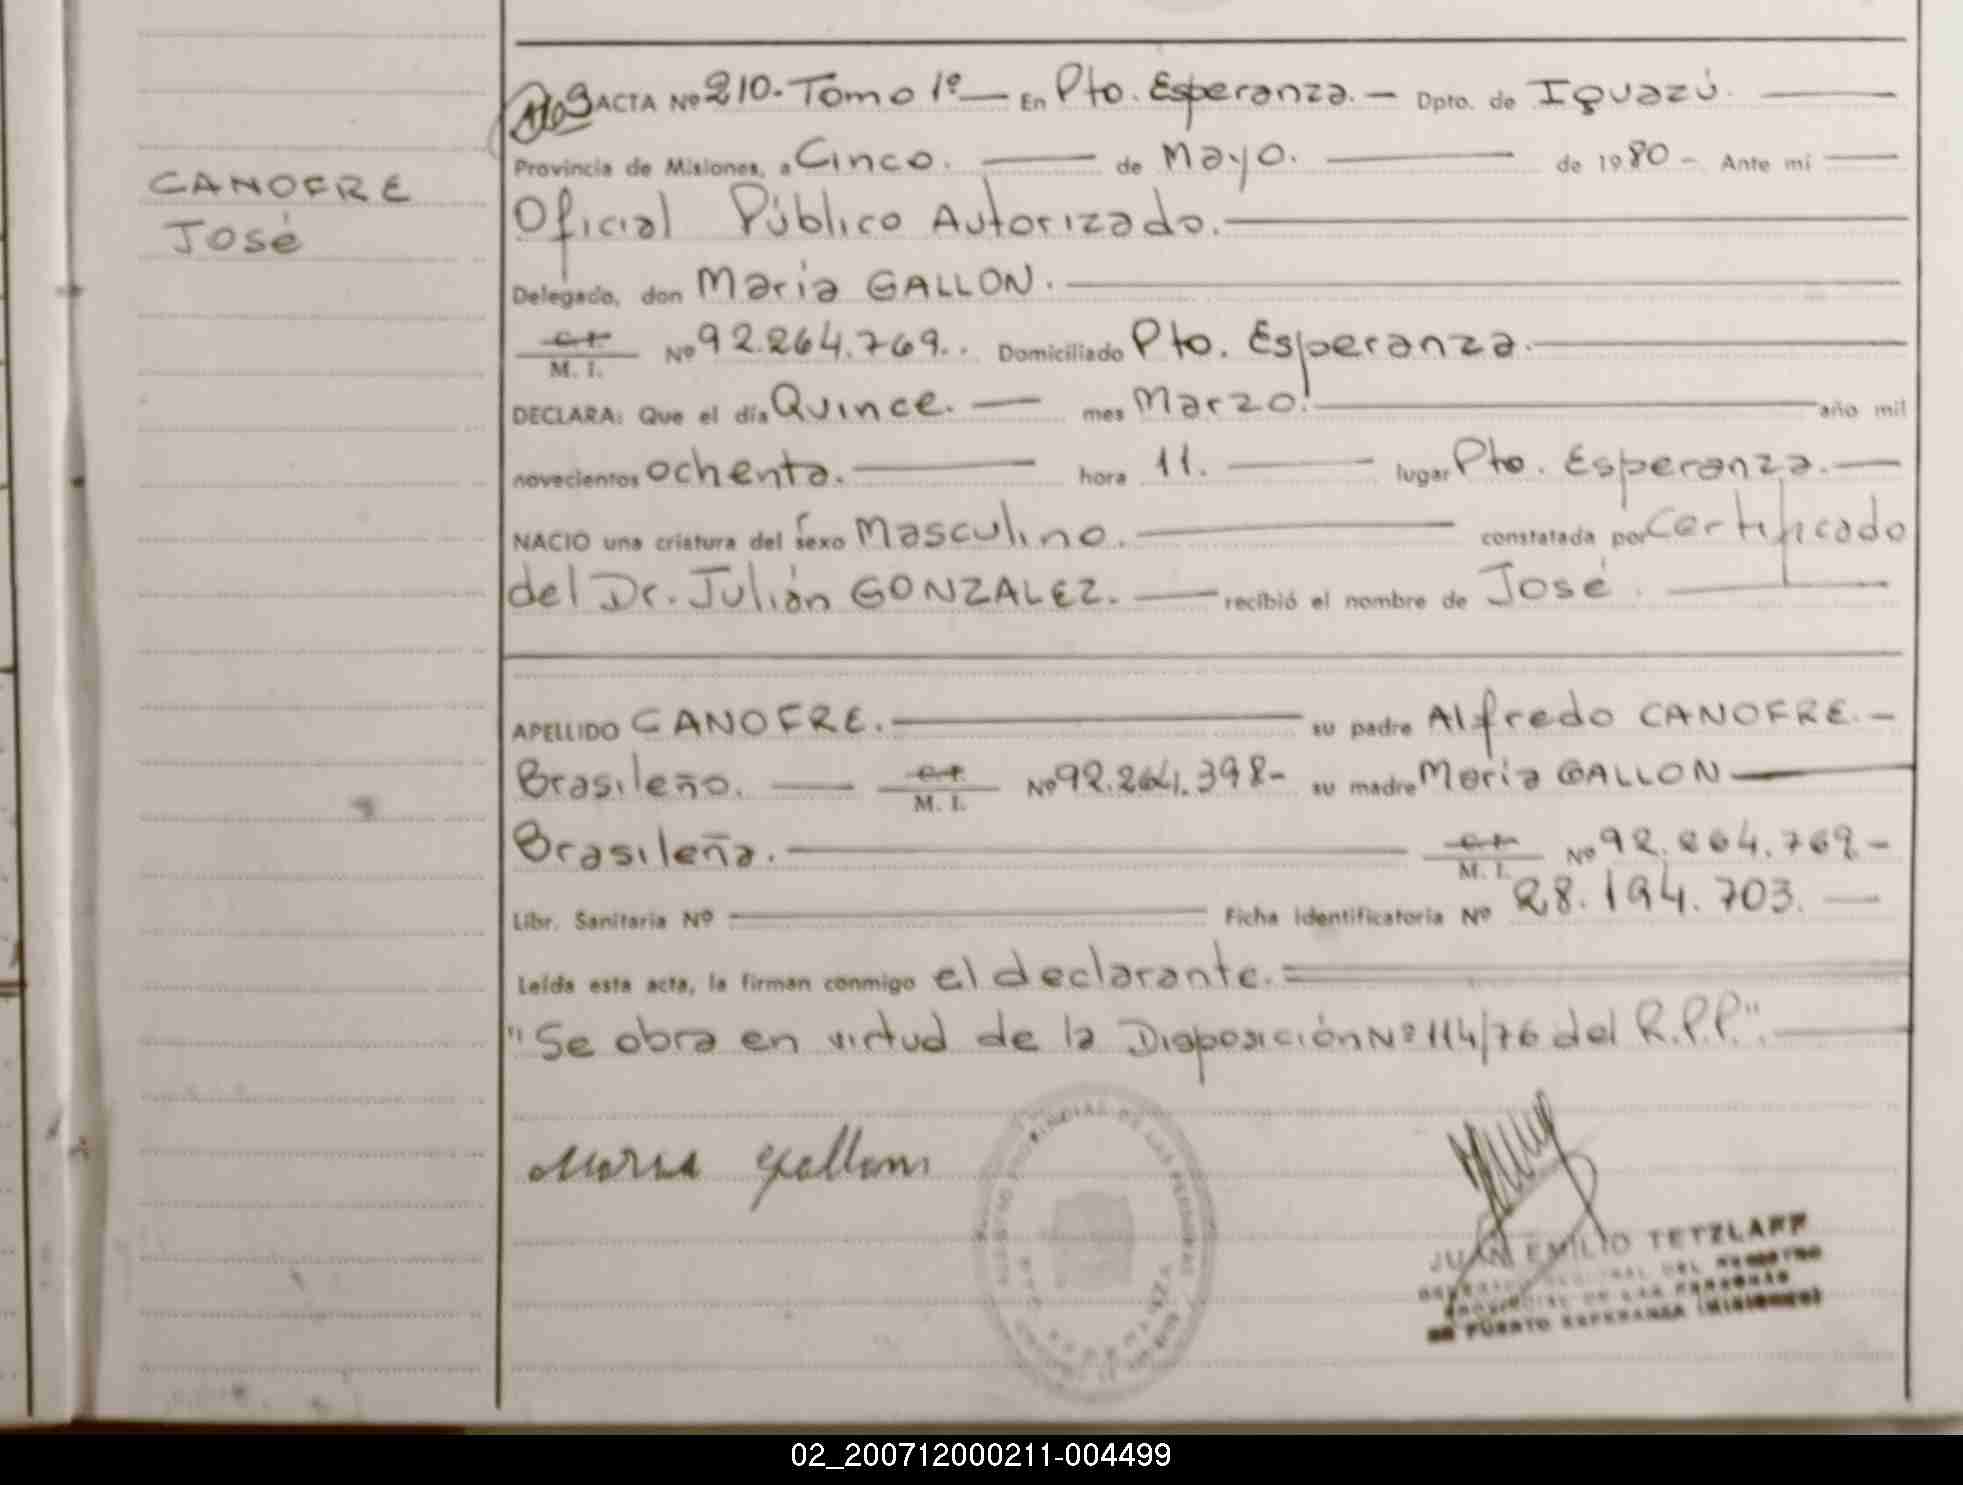 ACTA Nº 210. Tomo 1º — En Pto. Esperanza. — Dpto. de Iguazú.
Provincia de Misiones, a Cinco. de Mayo. de 1980 - Ante mi
CANOFRE
José
Oficial Público Autorizado.
Delegado, don Maria GALLON.
M. I. Nº 92.264.769.. Domiciliado Pto. Esperanza.
DECLARA: Que el día Quince. mes Marzo. año mil
novecientos ochenta. hora 11. lugar Pto. Esperanza.
NACIO una criatura del sexo Masculino. constatada por Certificado
del Dr. Julián GONZALEZ. recibió el nombre de José.
APELLIDO CANOFRE. su padre Alfredo CANOFRE. -
Brasileño. M. I. Nº 92.264.398- su madre Maria GALLON
Brasileña. M. I. Nº 92.264.769-
Libr. Sanitaria Nº Ficha identificatoria Nº 28.194.703.
Leída esta acta, la firman conmigo el declarante.
"Se obra en virtud de la Disposición Nº 114/76 del R.P.P".
Maria Gallon
JUAN EMILIO TETZLAFF
DELEGADO REGIONAL DEL REGISTRO
PROVINCIAL DE LAS PERSONAS
DE PUERTO ESPERANZA (MISIONES)
02_200712000211-004499